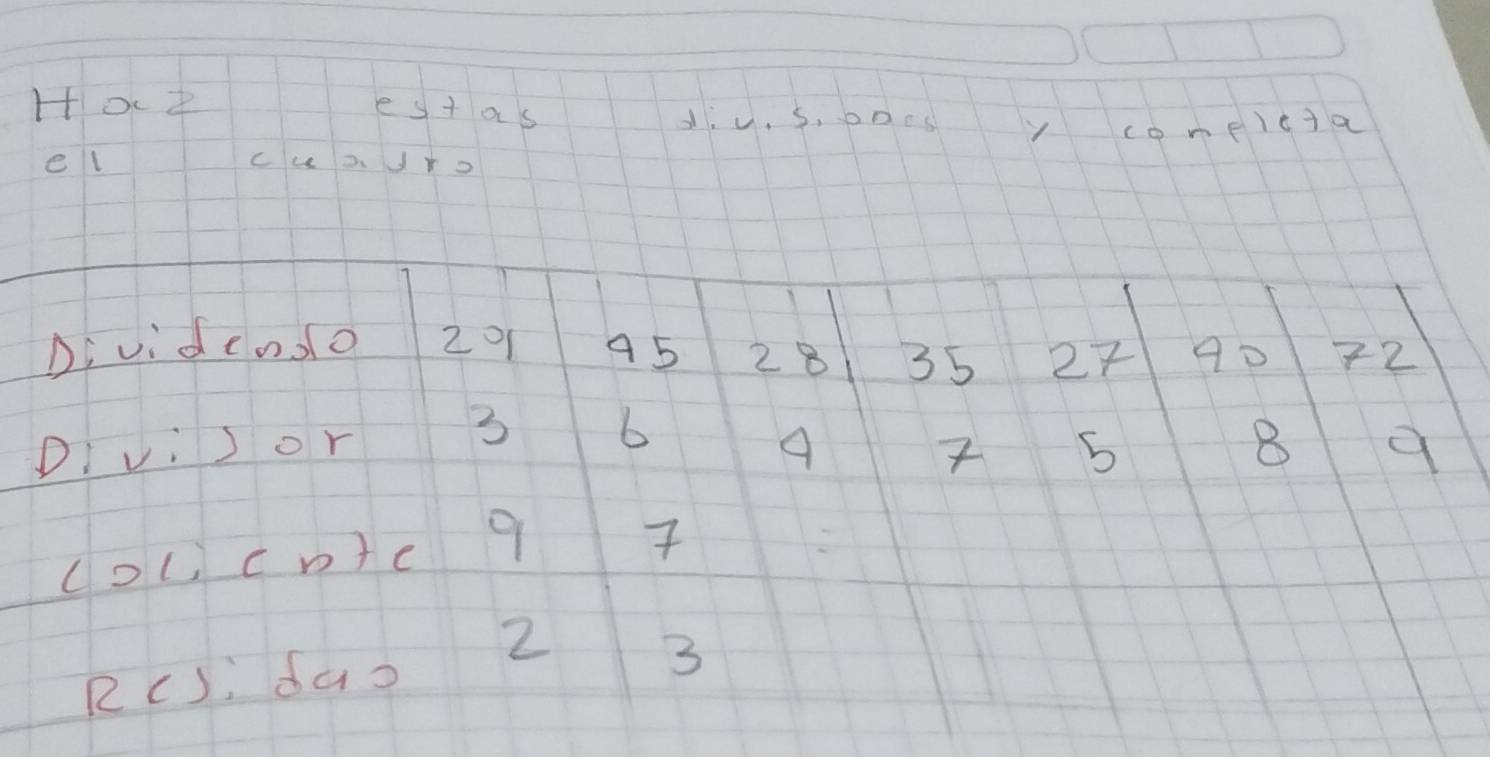 Haz estas divisiones y completa
el cuadro
Dividendo 29 45 28 35 27 40 72
Divisor 3 6 4 7 5 8 9
Cociente 9 7
Residuo 2 3